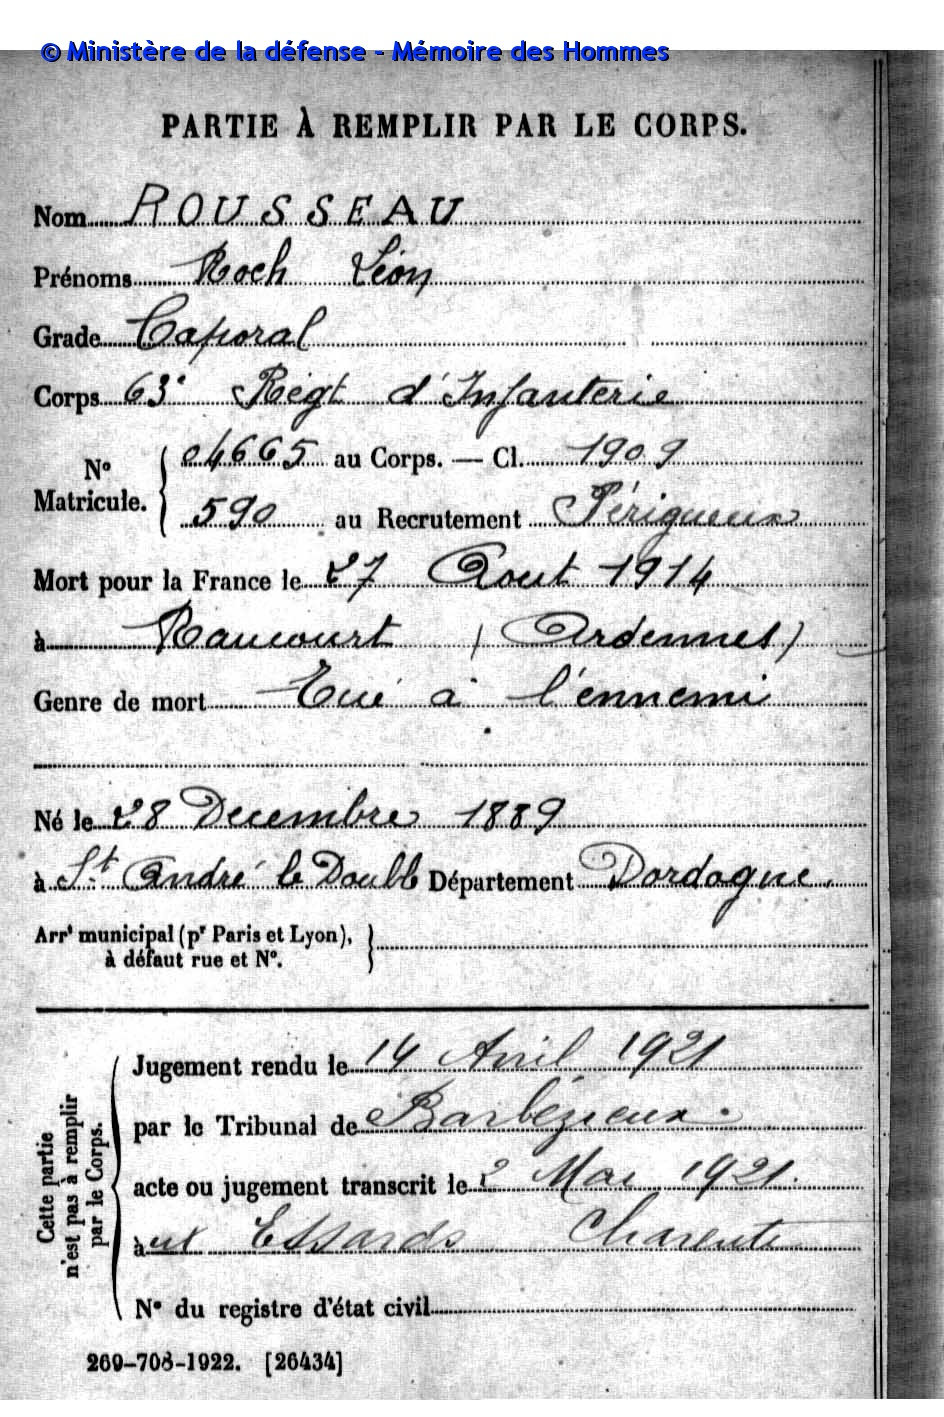 © Ministère de la défense - Mémoire des Hommes
PARTIE À REMPLIR PAR LE CORPS.
Nom ROUSSEAU
Prénoms Roch Léon
Grade Caporal
Corps 63e Régt d'Infanterie
N° Matricule. 04665 au Corps. — Cl. 1909
590 au Recrutement Périgueux
Mort pour la France le 27 Aout 1914
à Raucourt (Ardennes)
Genre de mort Tué à l'ennemi
Né le 28 Decembre 1889
à St. André le Doubl Département Dordogne.
Arrt municipal (pr Paris et Lyon),
à défaut rue et N°.
Cette partie
n'est pas à remplir
par le Corps.
Jugement rendu le 14 Avril 1921
par le Tribunal de Barbézieux.
acte ou jugement transcrit le 2 Mai 1921.
à ux Essards Charente
N° du registre d'état civil
269-708-1922. [26434]